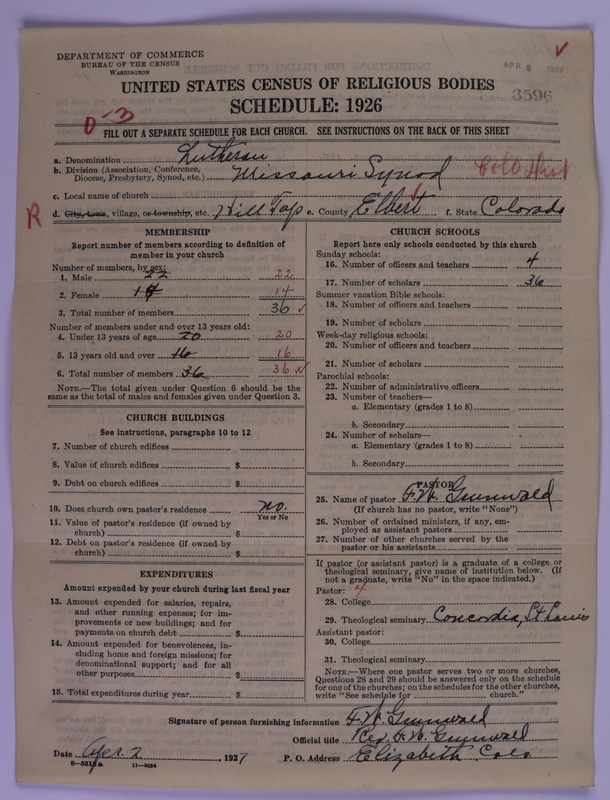 DEPARTMENT OF COMMERCE
BUREAU OF THE CENSUS
WASHINGTON
APR 8 1927
3596
UNITED STATES CENSUS OF RELIGIOUS BODIES
SCHEDULE: 1926
0-3
FILL OUT A SEPARATE SCHEDULE FOR EACH CHURCH. SEE INSTRUCTIONS ON THE BACK OF THIS SHEET
a. Denomination Lutheran
b. Division (Association, Conference, Diocese, Presbytery, Synod, etc.) Missouri Synod Colo Dist
c. Local name of church
R d. City, town, village, or township, etc. Hill Top e. County Elbert f. State Colorado
MEMBERSHIP
Report number of members according to definition of
member in your church
Number of members, by sex:
1. Male 22 22
2. Female 14 14
3. Total number of members 36
Number of members under and over 13 years old:
4. Under 13 years of age 20 20
5. 13 years old and over 16 16
6. Total number of members 36 36
NOTE.—The total given under Question 6 should be
same as the total of males and females given under Question 3.
CHURCH BUILDINGS
See instructions, paragraphs 10 to 12
7. Number of church edifices
8. Value of church edifices $
9. Debt on church edifices $
10. Does church own pastor's residence no.
Yes or No
11. Value of pastor's residence (if owned by
church) $
12. Debt on pastor's residence (if owned by
church) $
EXPENDITURES
Amount expended by your church during last fiscal year
13. Amount expended for salaries, repairs,
and other running expenses; for im-
provements or new buildings; and for
payments on church debt $
14. Amount expended for benevolences, in-
cluding home and foreign missions; for
denominational support; and for all
other purposes $
15. Total expenditures during year $
CHURCH SCHOOLS
Report here only schools conducted by this church
Sunday schools:
16. Number of officers and teachers 4
17. Number of scholars 36
Summer vacation Bible schools:
18. Number of officers and teachers
19. Number of scholars
Week-day religious schools:
20. Number of officers and teachers
21. Number of scholars
Parochial schools:
22. Number of administrative officers
23. Number of teachers—
a. Elementary (grades 1 to 8)
b. Secondary
24. Number of scholars—
a. Elementary (grades 1 to 8)
b. Secondary
PASTOR
25. Name of pastor F.W. Grunwald
(If church has no pastor, write "None")
26. Number of ordained ministers, if any, em-
ployed as assistant pastors
27. Number of other churches served by the
pastor or his assistants
If pastor (or assistant pastor) is a graduate of a college or
theological seminary, give name of institution below. (If
not a graduate, write "No" in the space indicated.)
Pastor: 4
28. College
29. Theological seminary Concordia, St Louis
Assistant pastor:
30. College
31. Theological seminary
NOTE.—Where one pastor serves two or more churches,
Questions 28 and 29 should be answered only on the schedule
for one of the churches; on the schedules for the other churches,
write "See schedule for church."
Signature of person furnishing information F.W. Grunwald
Official title Rev. F.W. Grunwald
Date Apr. 2, 1927 P. O. Address Elizabeth, Colo
8-5519a 11-9054